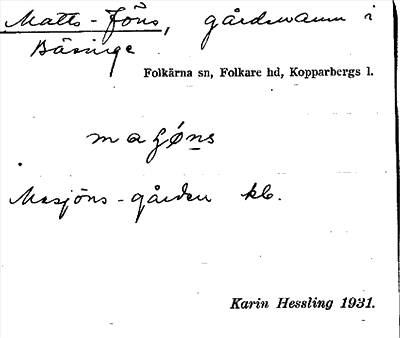 Matts-Jöns, gårdsnamn i
Bäsinge
Folkärna sn, Folkare hd, Kopparbergs l.
Masjöns-gården kb.
Karin Hessling 1931.